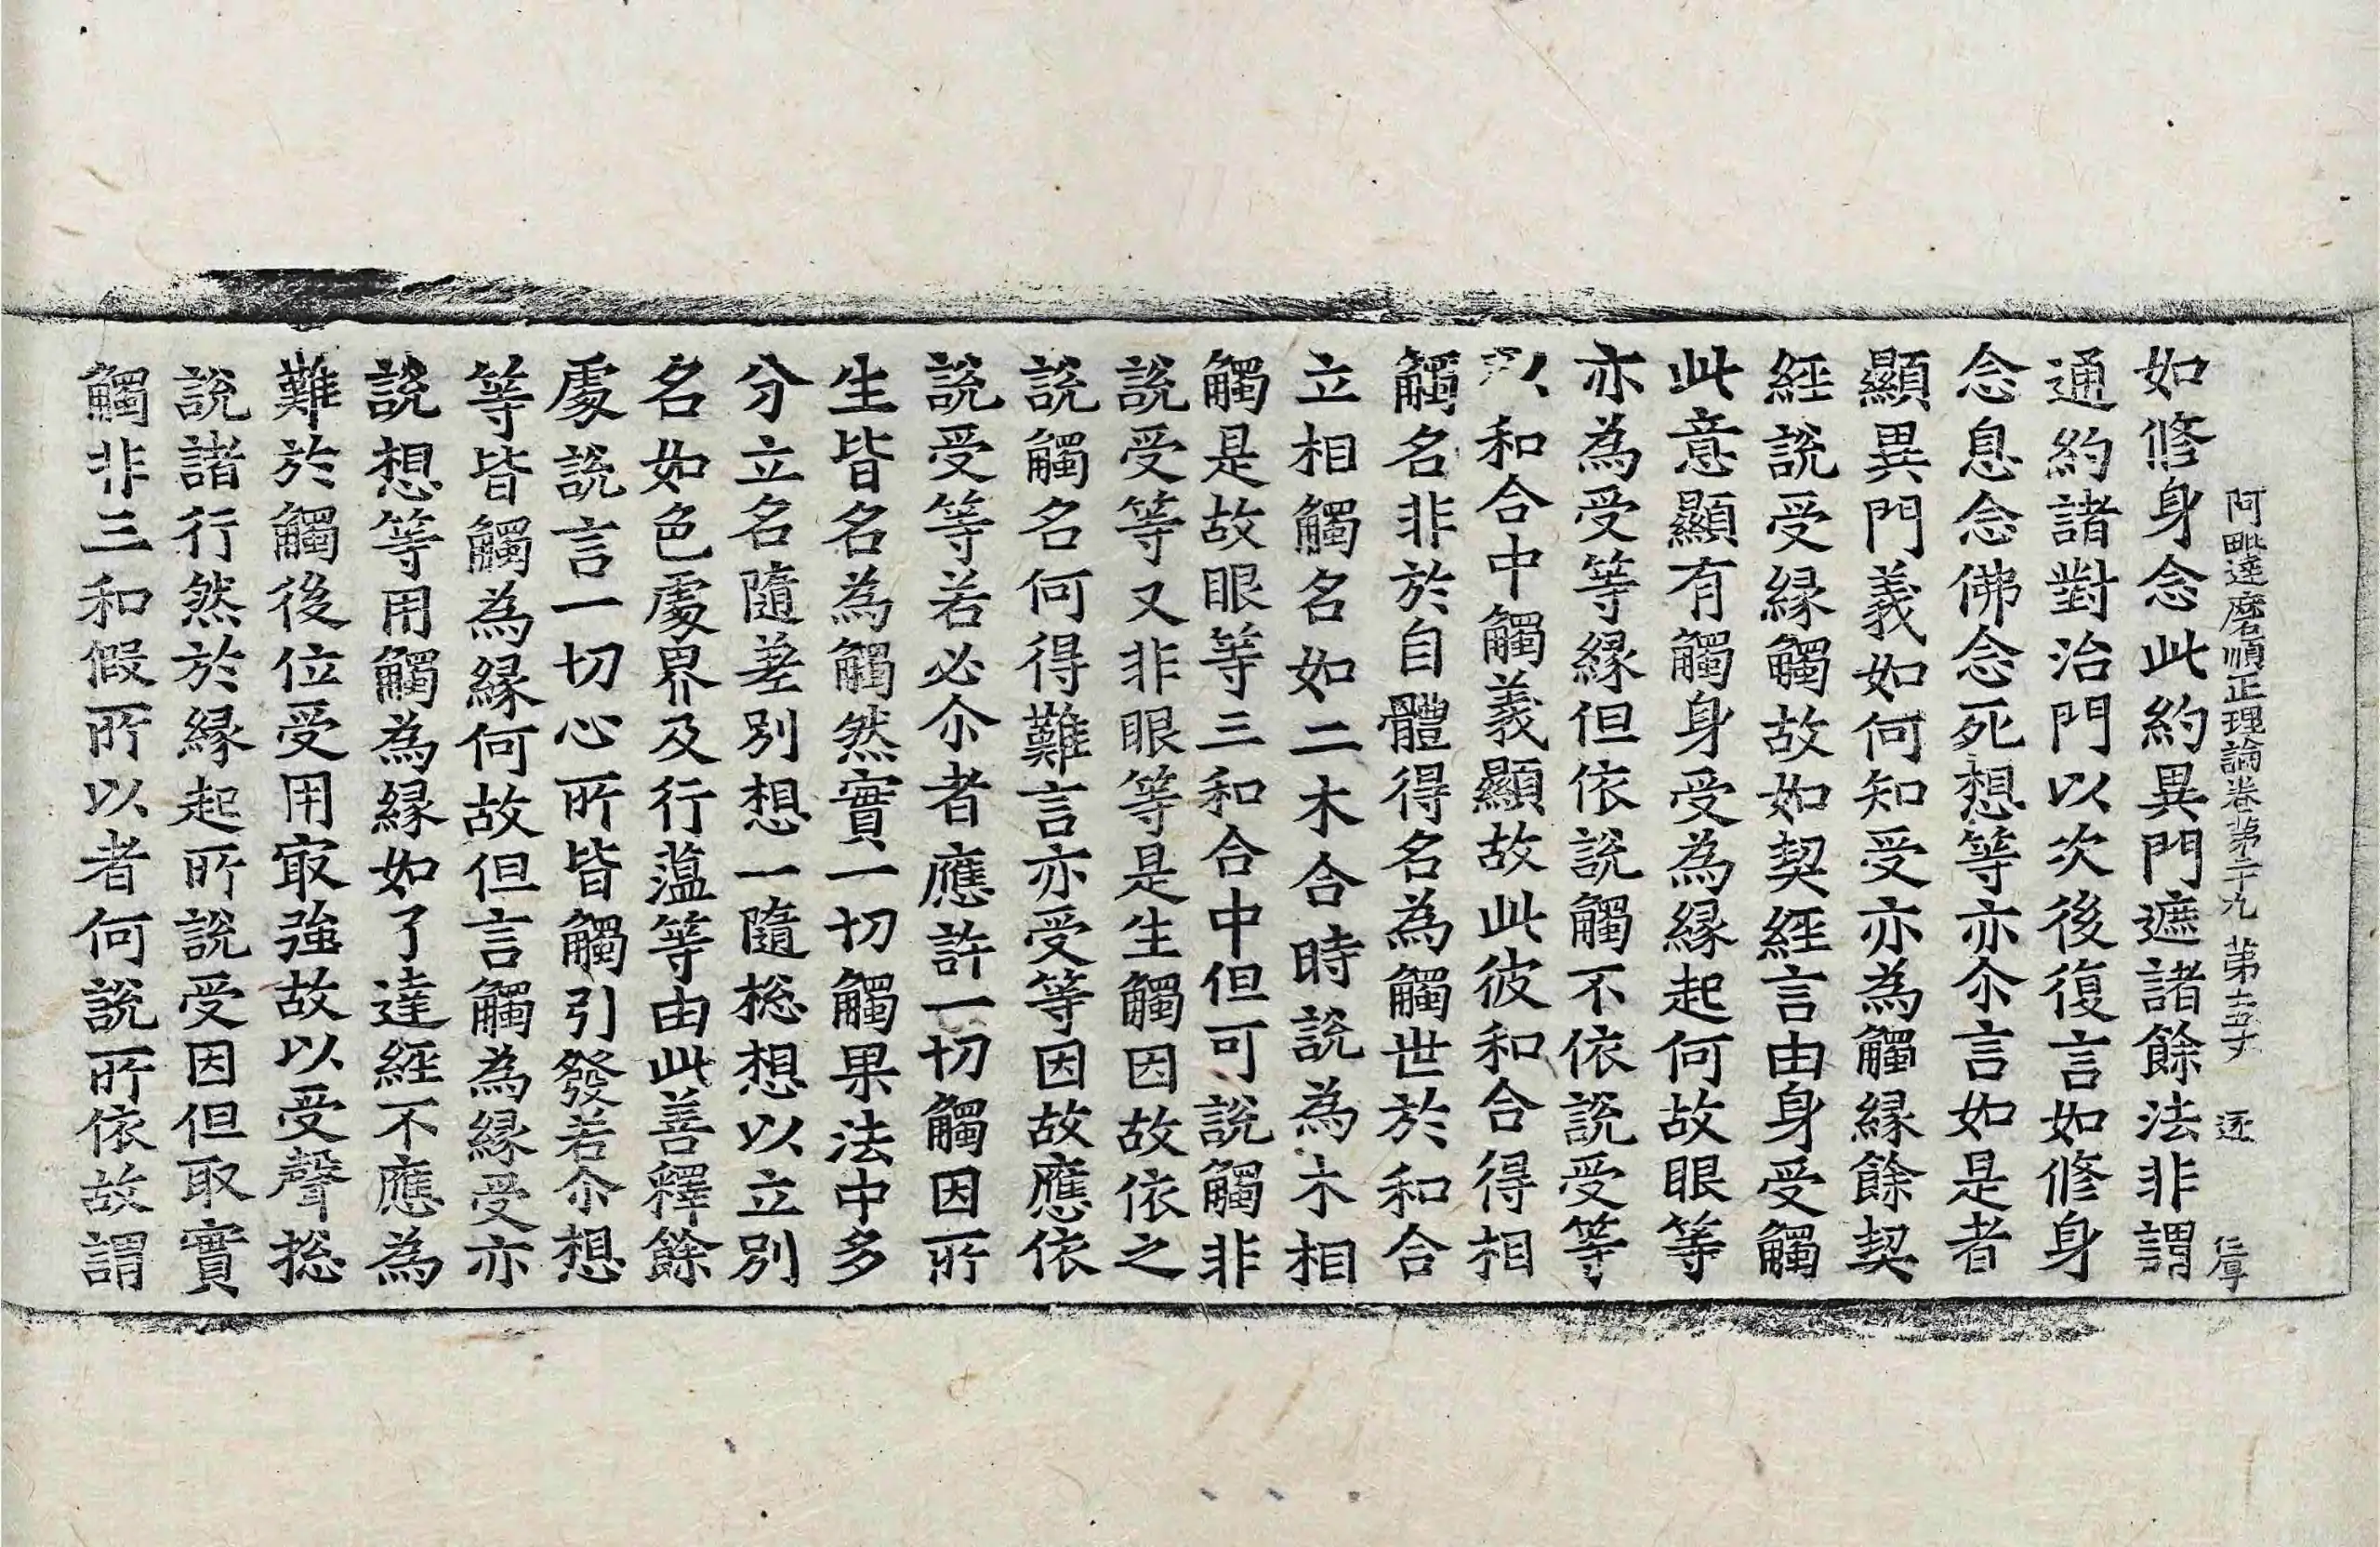 阿毗達磨順正理論卷第二十九 第十五丈 逐 仁孚
如修身念此約異門遮諸餘法非謂
通約諸對治門以次後復言如修身
念息念念佛念死想等亦尒言如是者
顯異門義如何知受亦為觸緣餘契
經說受緣觸故如契經言由身受觸
此意顯有觸身受為緣起何故眼等
亦為受等緣但依說觸不依說受等
以和合中觸義顯故此彼和合得相
觸名非於自體得名為觸世於和合
立相觸名如二木合時說為木相
觸是故眼等三和合中但可說觸非
說受等又非眼等是生觸因故依之
說觸名何得難言亦受等因故應依
說受等若必尒者應許一切觸因所
生皆名為觸然實一切觸果法中多
分立名隨差別想一隨揔想以立別
名如色處界及行蘊等由此善釋餘
處說言一切心所皆觸引發若尒想
等皆觸為緣何故但言觸為緣受亦
說想等用觸為緣如了達經不應為
難於觸後位受用㝡強故以受聲揔
說諸行然於緣起所說受因但取實
觸非三和假所以者何說所依故謂